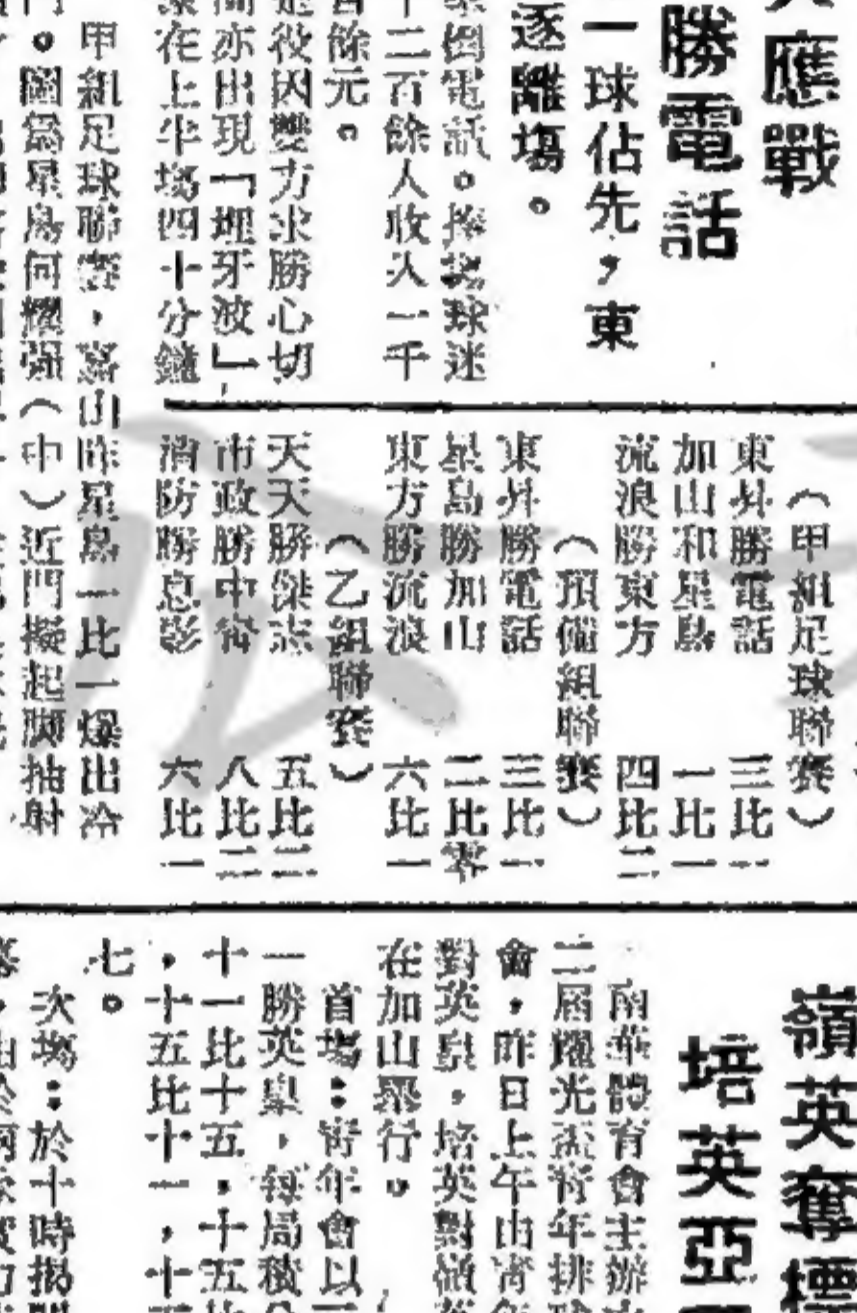 應戰
勝電話
一球佔先，東
逐離塲。
倒電話。捧塲球迷
二百餘人收入一千
餘元。
役因雙方求勝心切
亦出現「埋牙波」，
在上半塲四十分鐘
甲組足球聯賽，嘉山昨星島一比一爆出冷
門。圖爲星島何耀强（中）近門擬起脚抽射
（甲組足球聯賽）
東昇勝電話　三比一
加山和星島　一比一
流浪勝東方　四比二
（預備組聯賽）
東昇勝電話　三比一
星島勝加山　二比零
東方勝流浪　六比一
（乙組聯賽）
天天勝傑志　五比二
市政勝中銜　八比二
消防勝息影　六比一
嶺英奪標
培英亞
南華體育會主辦
二屆耀光盃靑年排球
會，昨日上午由靑年
對英皇，培英對嶺英
在加山舉行。
首塲：靑年會以
一勝英皇，每局積分
十一比十五，十五比
，十五比十一，十五
七。
次塲：於十時揭開